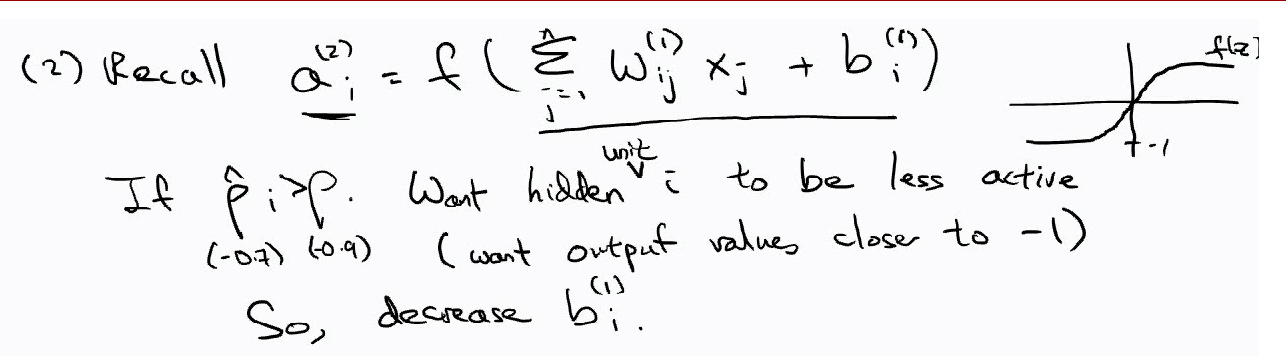 (2) Recall a_i^(2) = f ( Σ_{j=1}^n W_ij^(1) x_j + b_i^(1) ) f(z)
-1
If ρ̂_i > ρ. Want hidden unit i to be less active
(-0.7) (-0.9) (want output values closer to -1)
So, decrease b_i^(1).